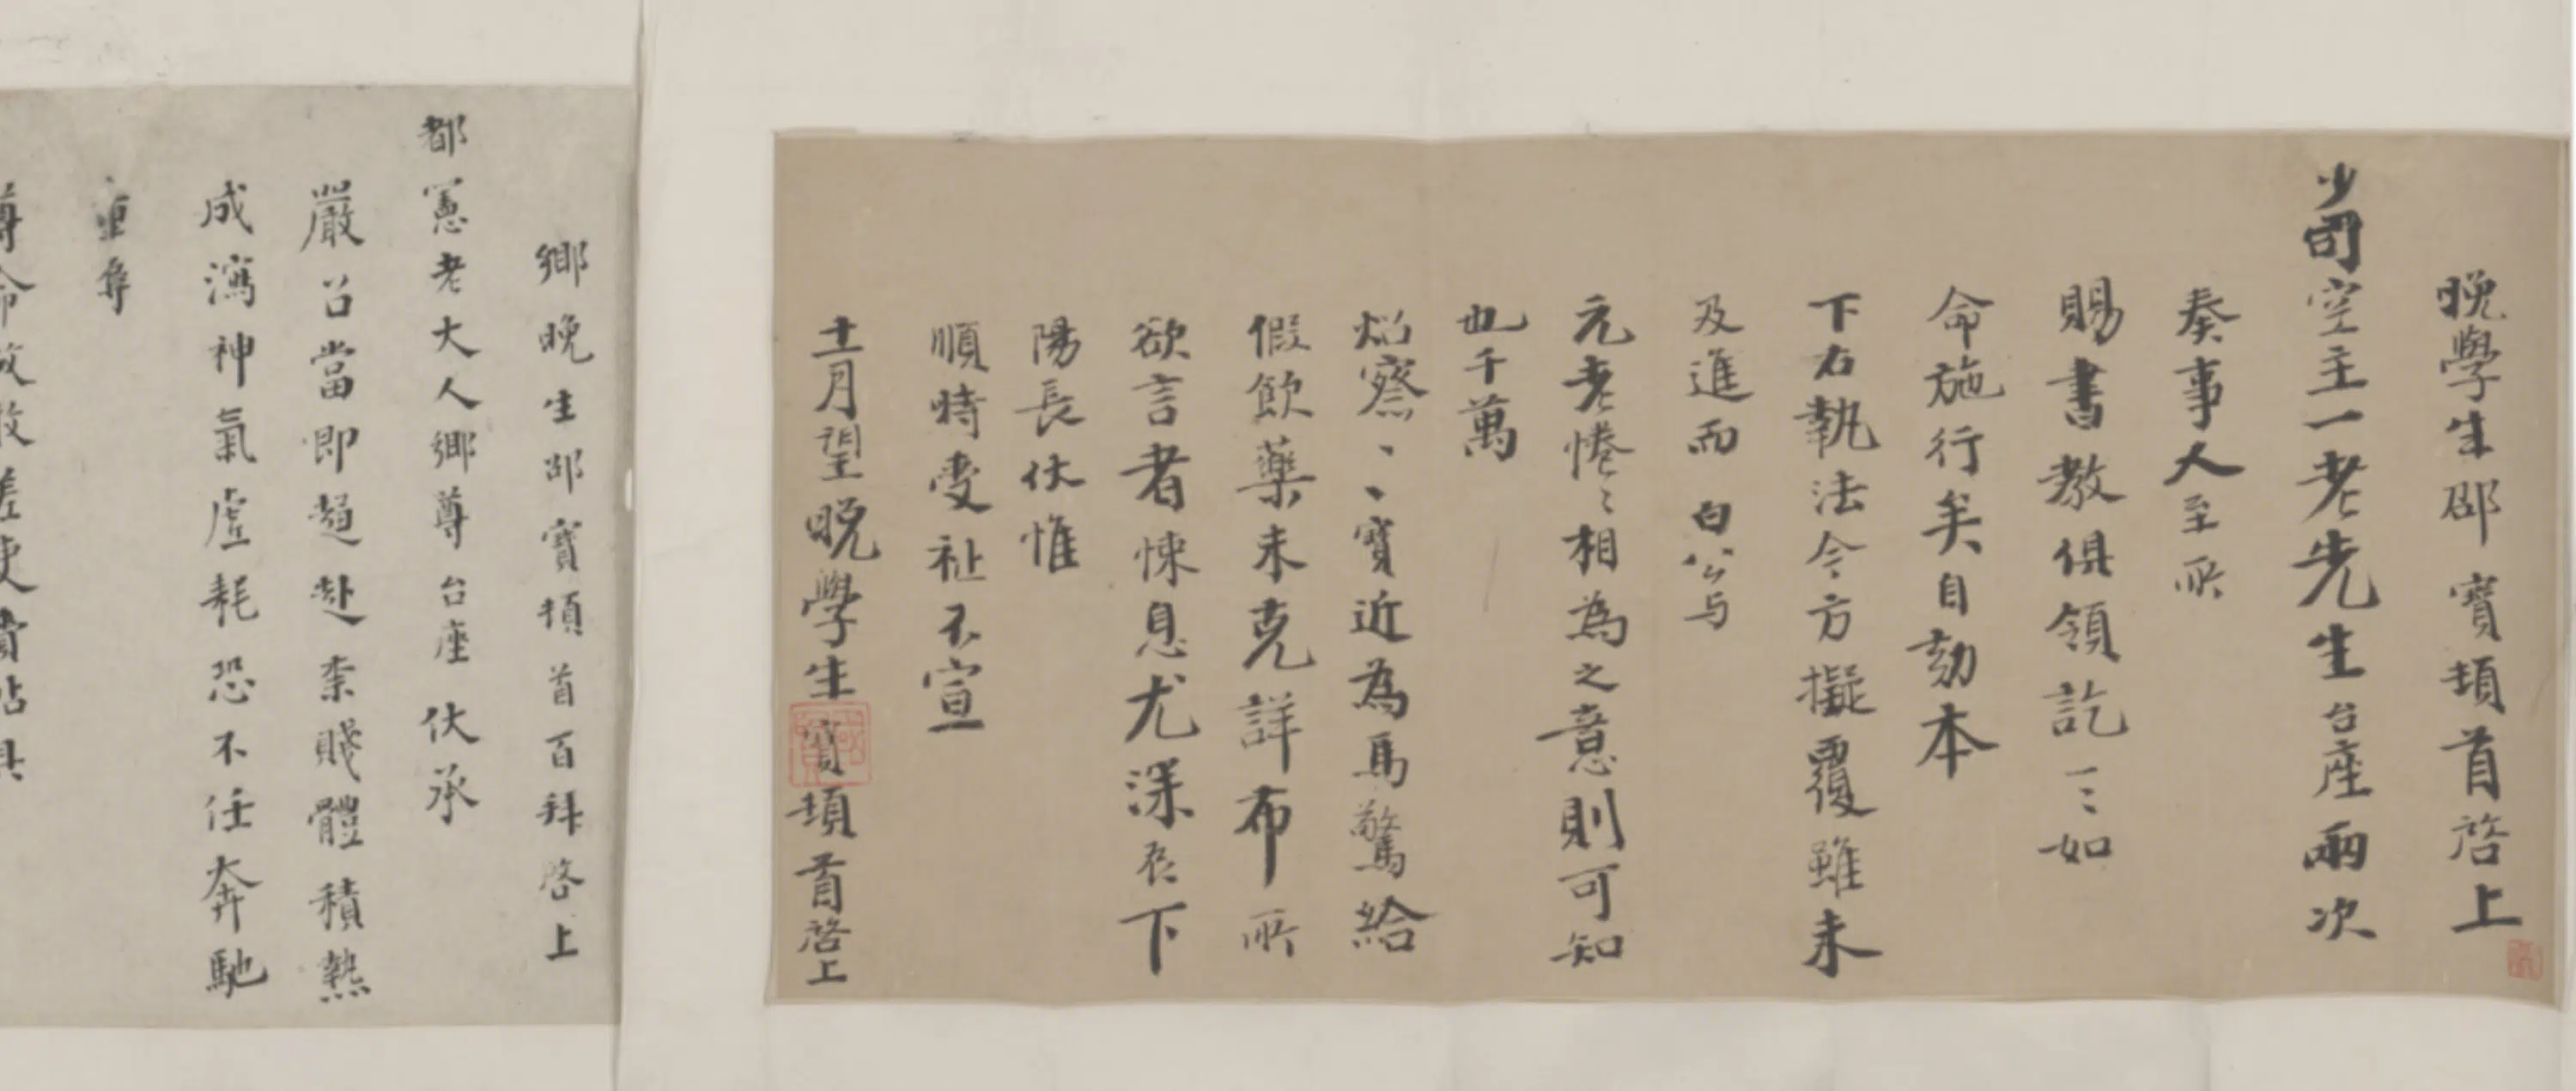 晚學生邵寶頓首啓上
少司空主一老先生台座兩次
奏事人至所
賜書教俱領訖一〻如
命施行矣自劾本
下右執法令方擬覆雖未
及進而白公与
元老惓〻相為之意則可知
也千萬
炤察〻〻寶近為馬驚給
假飲藥未克詳布所
欲言者悚息尤深臣下
陽長伏惟
順時受祉不宣
十一月望晚學生寶頓首啓上
鄉晚生邵寶頓首百拜啓上
都憲老大人鄉尊台座伏承
嚴召當即趨赴柰賤體積熱
成瀉神氣虛耗恐不任奔馳
重辱